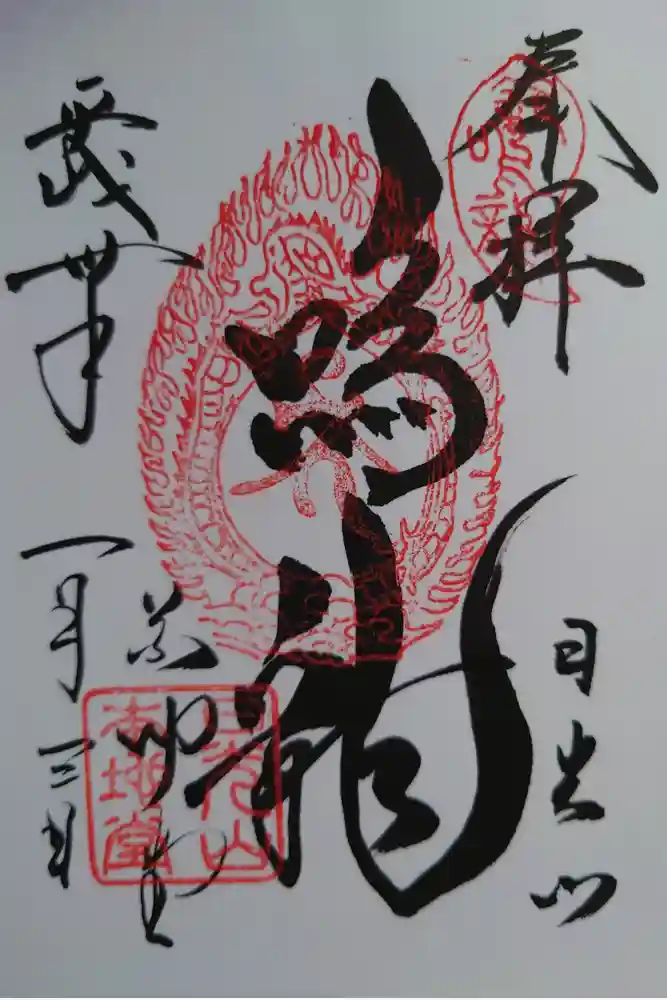 奉拝
日光山
鳴龍
薬師堂
日光山
本地堂
一月三日